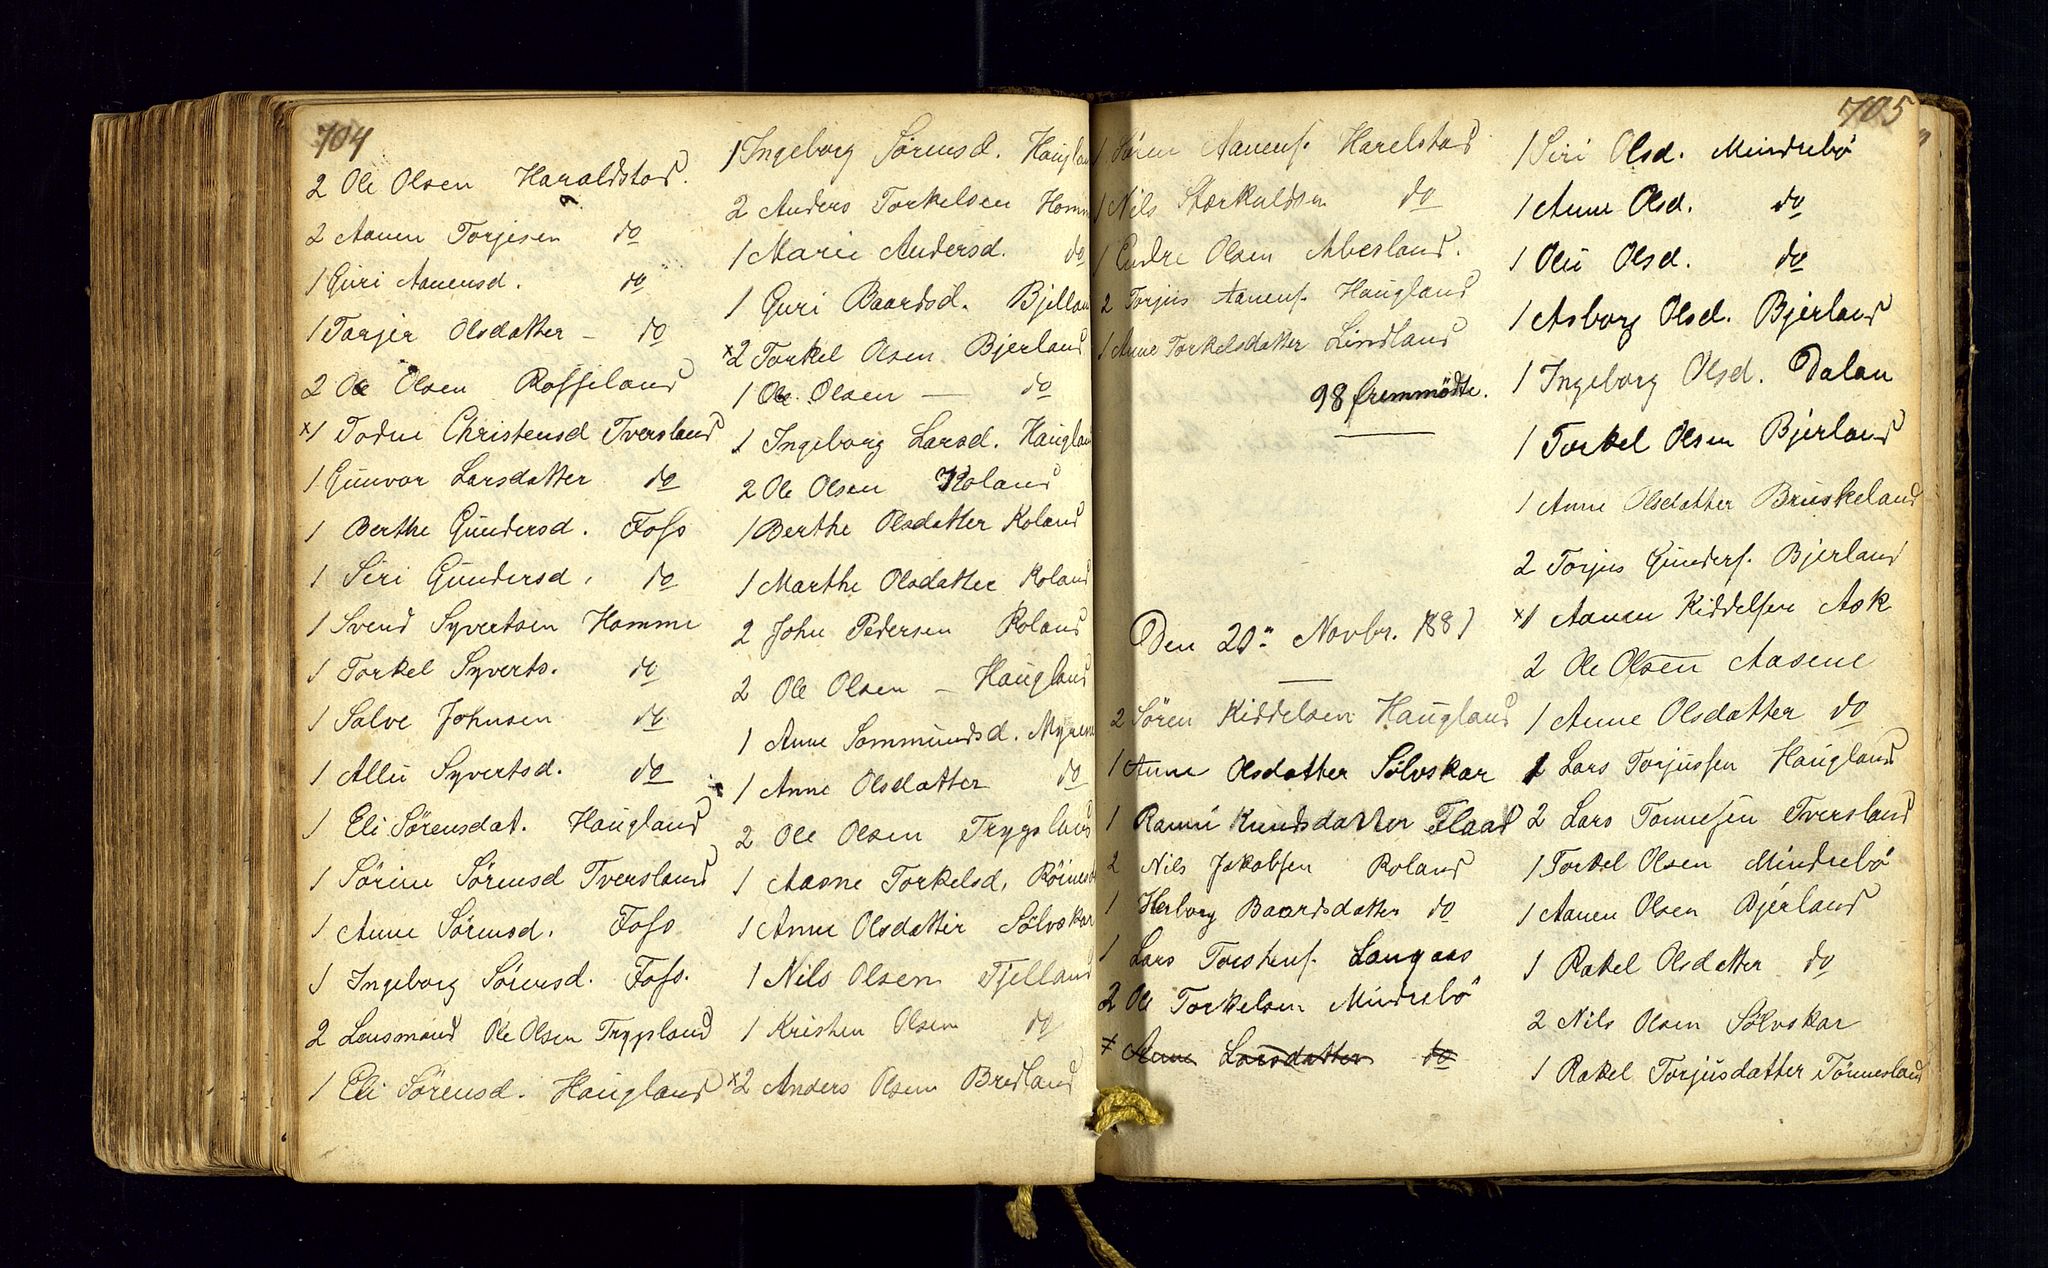 704
2 Ole Olsen Haraldstad.
2 Aanen Torjesen do
1 Guri Aanensd. do
1 Torjer Olsdatter - do
2 Ole Olsen Rosseland
x1 Todne Christensd Tversland
1 Gunvor Larsdatter do
1 Berthe Gundersd. Foss
1 Siri Gundersd. do
1 Svend Syvertsen Homme
1 Torkel Syverts. do
1 Salve Johnsen do
1 Alli Syvertsd. do
1 Eli Sørensdat. Haugland
1 Sørine Sørensd Tversland
1 Anne Sørensd. Foss
1 Ingeborg Sørensd. Foss.
2 Lensmand Ole Olsen Trygsland
1 Eli Sørensd. Haugland
1 Ingeborg Sørensd. Haugland
2 Anders Torkelsen Homme
1 Marie Andersd. do
1 Guri Baardsd. Bjelland
x2 Torkel Olsen Bjerland
1 Ole Olsen — do
1 Ingeborg Larsd. Haugland
2 Ole Olsen Roland
1 Berthe Olsdatter Roland
1 Marthe Olsdatter Roland
2 John Pedersen Roland
2 Ole Olsen - Haugland
1 Anne Sommundsd. Myrene
1 Anne Olsdatter do
2 Ole Olsen Trygsland
1 Aasne Torkelsd.
1 Anne Olsdatter Sølvskar
1 Nils Olsen Fjelland
1 Kristen Olsen do
x2 Anders Olsen Bredland
705
1 Søren Aanens. Harelstad
1 Nils Stærkuldsen do
1 Endre Olsen Abesland.
2 Torjus Aanens. Haugland
1 Anne Torkelsdatter Lindland
98 fremmødte.
Den 20de Novbr. 1881
2 Søren Kiddelsen Haugland
1 Anne Olsdatter Sølvskar
1 Ranni Knudsdatter Flaad
2 Nils Jakobsen Roland
1 Herborg Baardsdatter do
1 Lars Torstens. Langaas
2 Ole Torkelsen Mindrebø
x Anne Larsdatter do
1 Siri Olsd. Mindrebø
1 Anne Olsd. do
1 Oli Olsd. do
1 Asborg Olsd. Bjerland
1 Ingeborg Olsd. Dalan
1 Torkel Olsen Bjerland
1 Anne Olsdatter Bruskeland
2 Torjus Gunders. Bjerland
x1 Aanen Kiddelsen Ask
2 Ole Olsen Aasene
1 Anne Olsdatter do
2 Lars Torjussen Haugland
2 Lars Tønnesen Tversland
1 Torkel Olsen Mindrebø
1 Aanen Olsen Bjerland
1 Rakel Olsdatter do
2 Nils Olsen Sølvskar
1 Rakel Torjusdatter Tønnesland